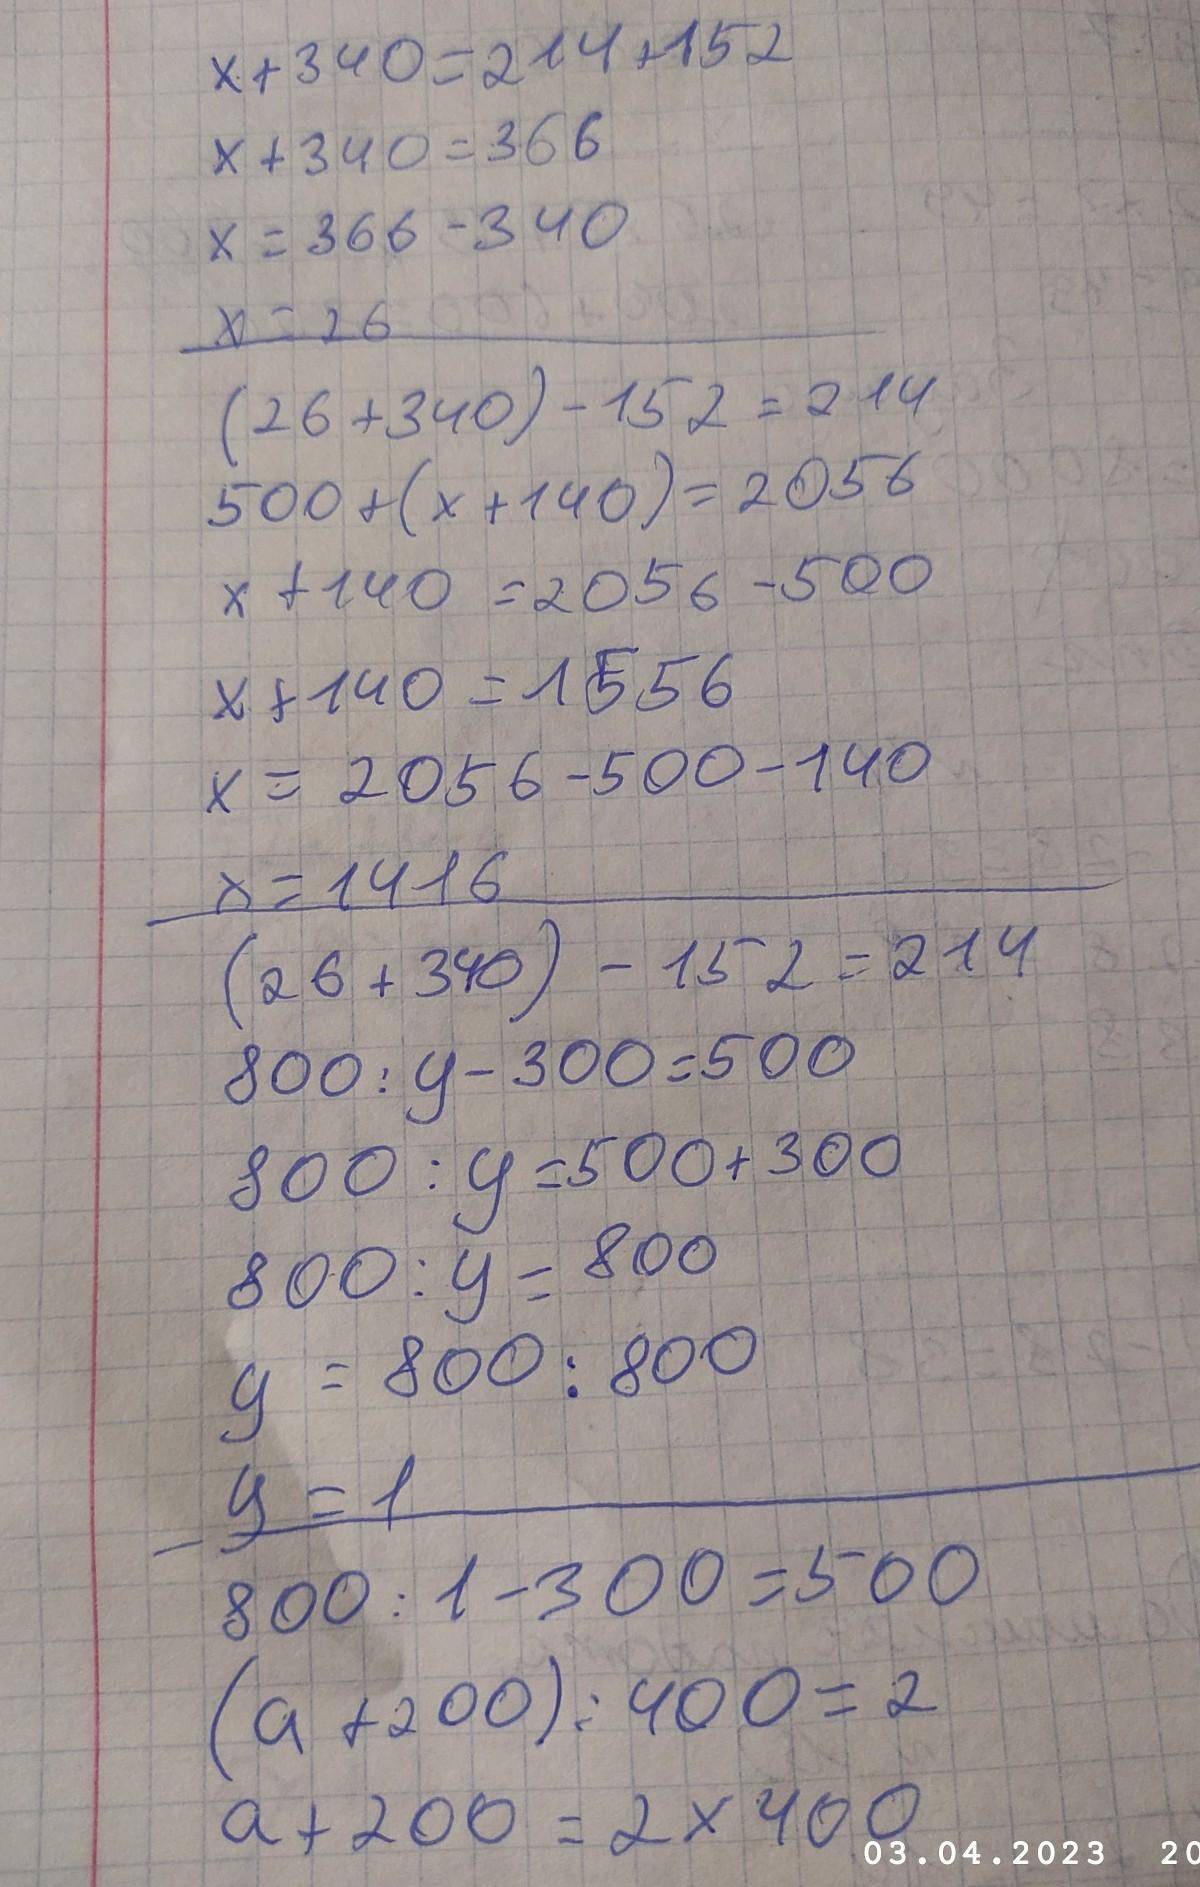 x+340=214+152
x+340=366
x=366-340
x=26
(26+340)-152=214
500+(x+140)=2056
x+140=2056-500
x+140=1556
x=2056-500-140
x=1416
(26+340)-152=214
800:y-300=500
800:y=500+300
800:y=800
y=800:800
y=1
800:1-300=500
(a+200):400=2
a+200=2x400
03.04.2023 20